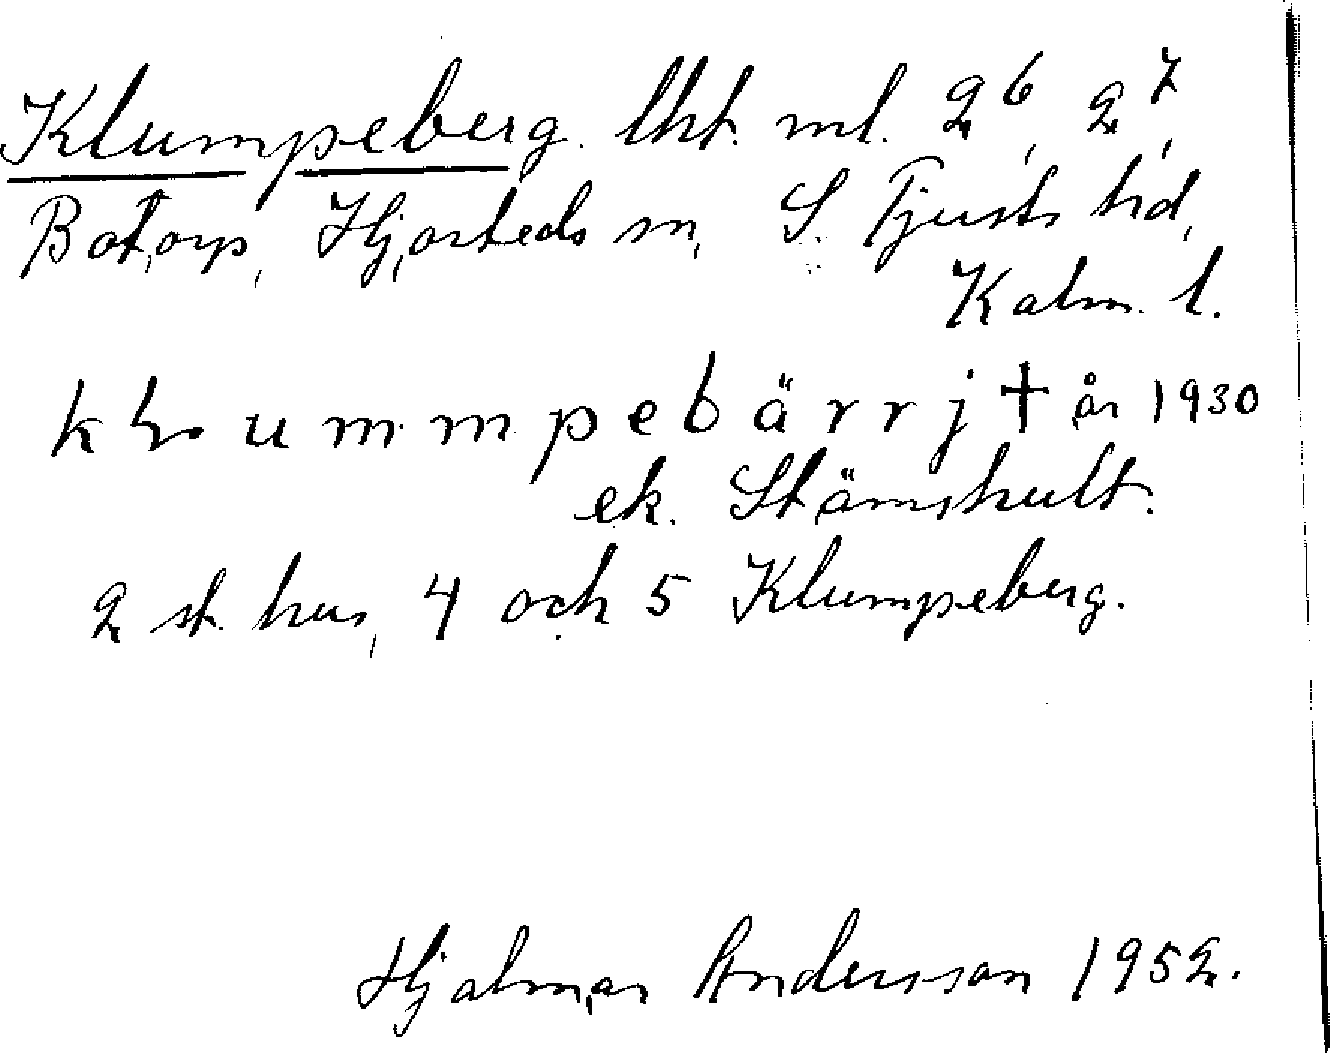 Klumpeberg. lht. ml. 2⁶, 2⁷,
Botorp, Hjorteds sn, S. Tjusts hd,
Kalm. l.
k l u m m p e b ä r r j † år 1930
ek. Stämshult.
2 st. hus, 4 och 5 Klumpeberg.
Hjalmar Andersson 1952.